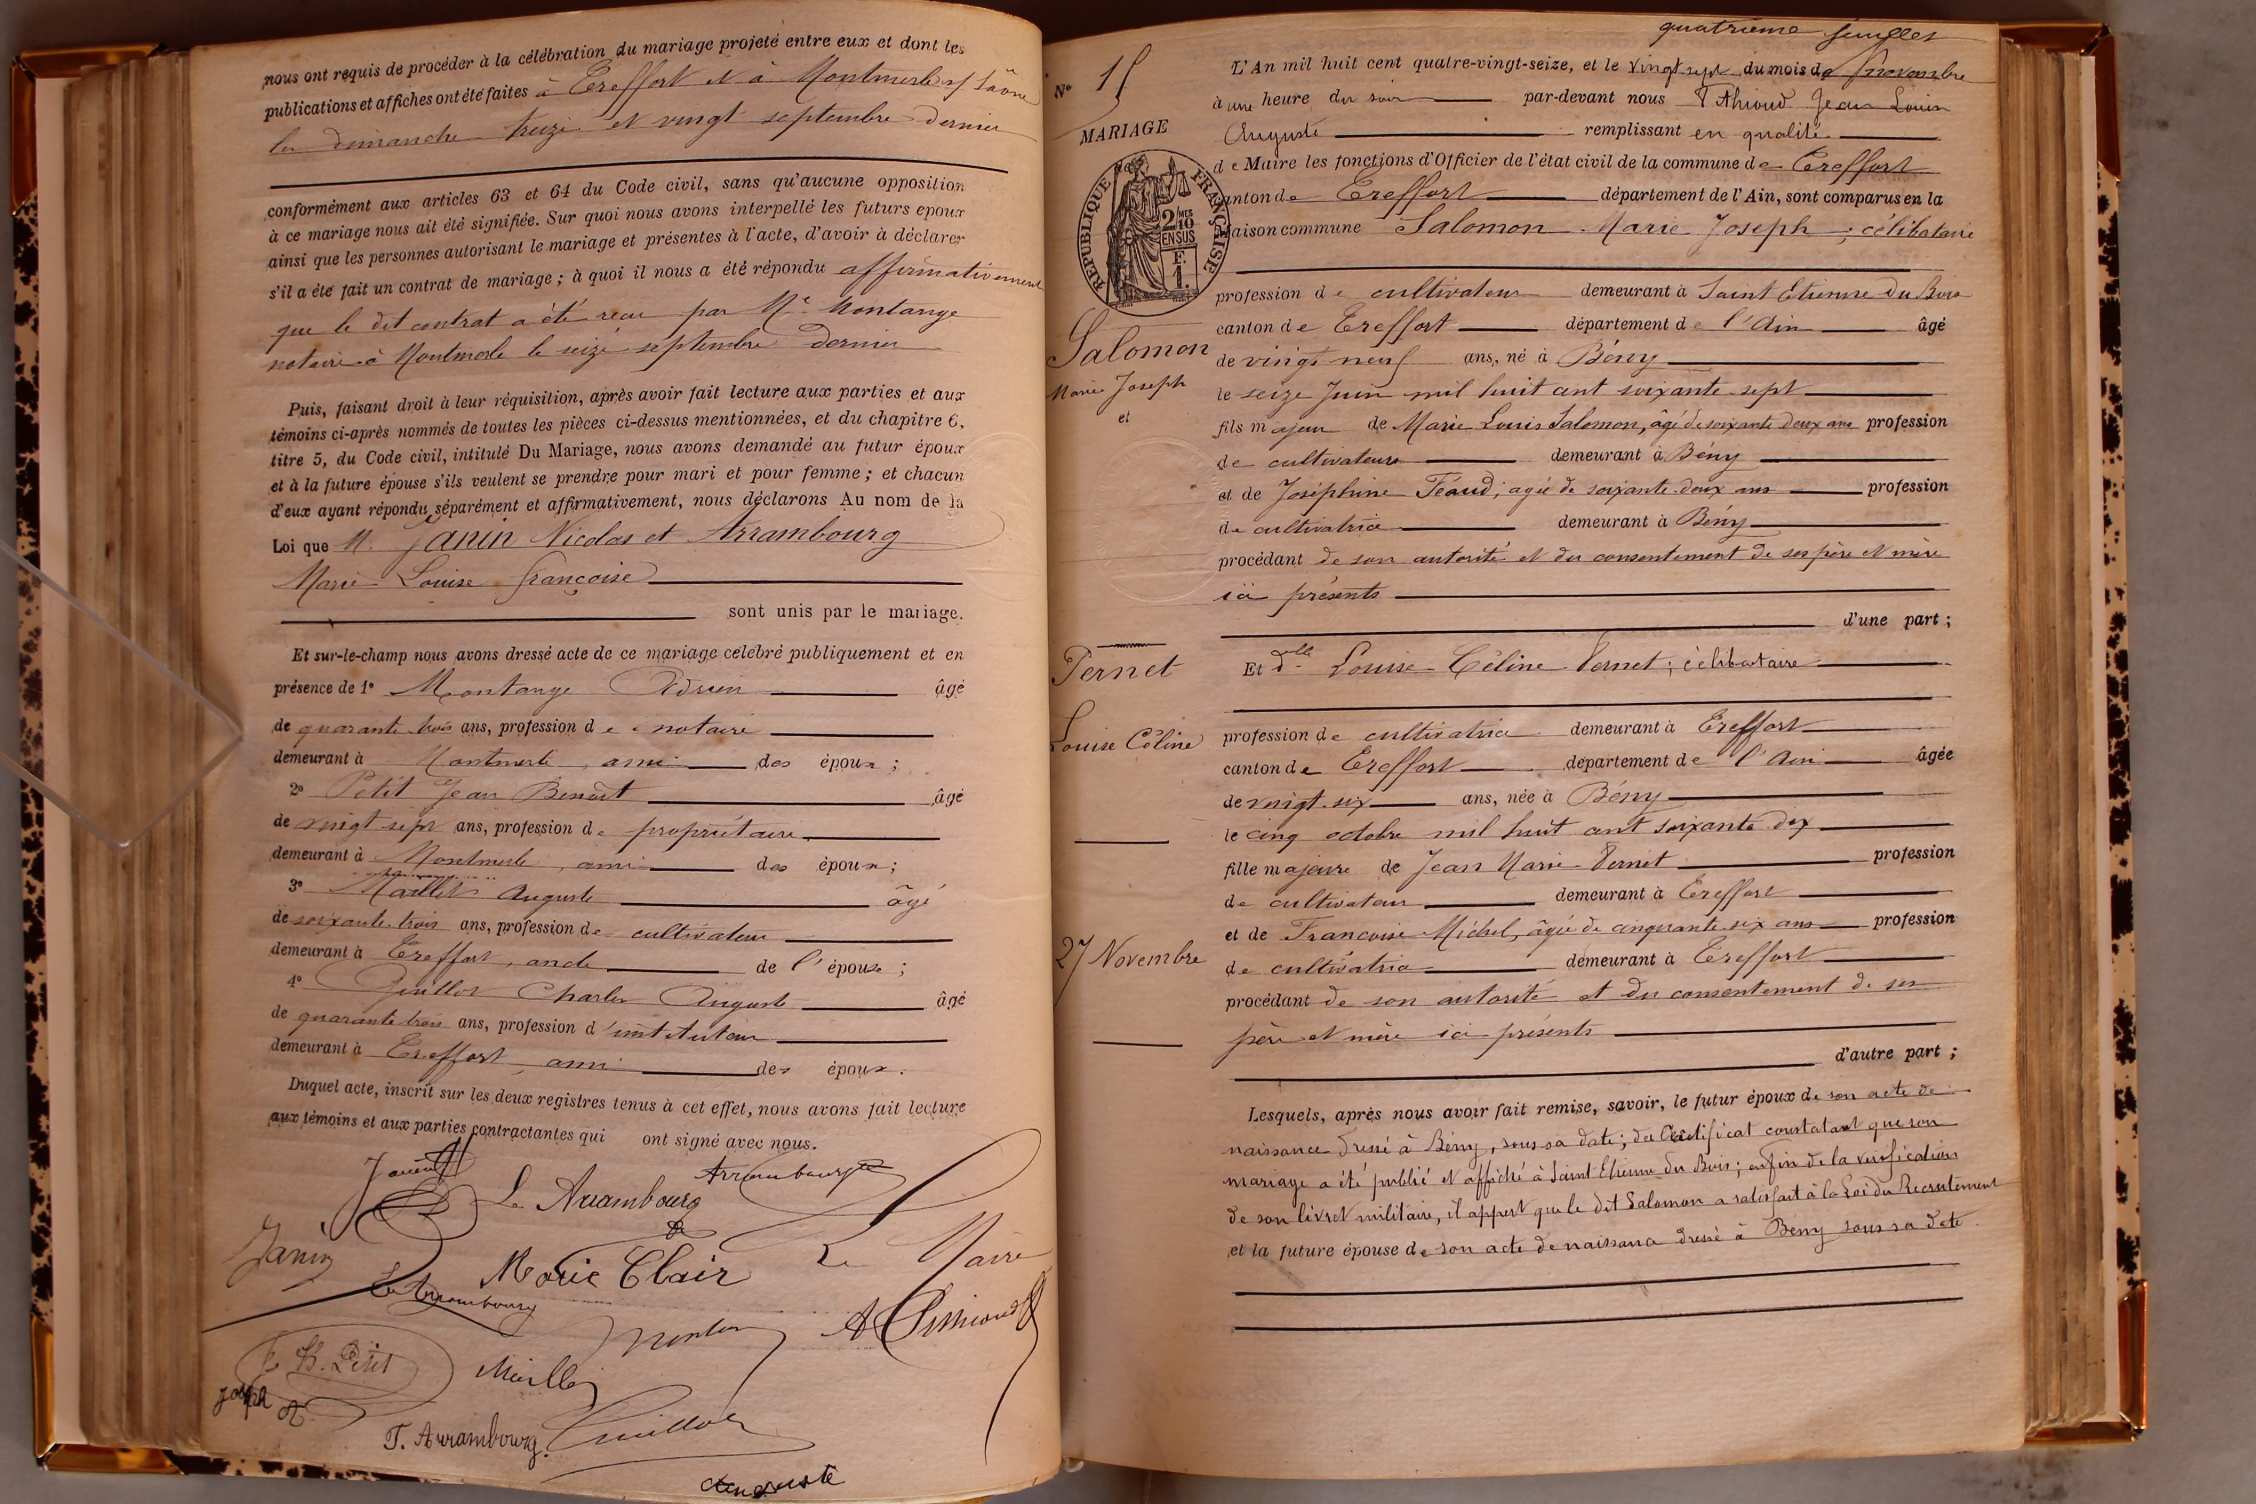 nous ont requis de procéder à la célébration du mariage projeté entre eux et dont les
publications et affiches ont été faites à Treffort et à Montmerle s/ Saône
les dimanche treize et vingt septembre dernier
conformément aux articles 63 et 64 du Code civil, sans qu'aucune opposition
à ce mariage nous ait été signifiée. Sur quoi nous avons interpellé les futurs époux
ainsi que les personnes autorisant le mariage et présentes à l'acte, d'avoir à déclarer
s'il a été fait un contrat de mariage ; à quoi il nous a été répondu affirmativement
que le dit contrat a été reçu par Me Montange
notaire à Montmerle le seize septembre dernier
Puis, faisant droit à leur réquisition, après avoir fait lecture aux parties et aux
témoins ci-après nommés de toutes les pièces ci-dessus mentionnées, et du chapitre 6,
titre 5, du Code civil, intitulé Du Mariage, nous avons demandé au futur époux
et à la future épouse s'ils veulent se prendre pour mari et pour femme ; et chacun
d'eux ayant répondu séparément et affirmativement, nous déclarons Au nom de la
Loi que M. Janin Nicolas et Arrambourg
Marie Louise Françoise
sont unis par le mariage.
Et sur-le-champ nous avons dressé acte de ce mariage célébré publiquement et en
présence de 1° Montange Adrien âgé
de quarante trois ans, profession de notaire
demeurant à Montmerle, ami des époux ;
2° Petit Jean Benoit âgé
de vingt sept ans, profession de propriétaire
demeurant à Montmerle, ami des époux ;
3° Maillet Auguste âgé
de soixante trois ans, profession de cultivateur
demeurant à Treffort, oncle de l'épouse ;
4° Guillot Charles Auguste âgé
de quarante trois ans, profession d'instituteur
demeurant à Treffort, ami des époux.
Duquel acte, inscrit sur les deux registres tenus à cet effet, nous avons fait lecture
aux témoins et aux parties contractantes qui ont signé avec nous.
Janin
Arrambourg
L. Arrambourg
Janin
Marie Clair
Le Maire
Arrambourg
A Pithioud
B. Petit
Maillet
Joseph
T. Arrambourg
Guillot
Auguste
quatrième feuillet
N° 15
MARIAGE
RÉPUBLIQUE FRANÇAISE
2/10 MES
EN SUS
F.
1.
Salomon
Marie Joseph
et
Pernet
Louise Céline
27 Novembre
L'An mil huit cent quatre-vingt-seize, et le vingt sept du mois de novembre
à une heure du soir par-devant nous Pithioud Jean Louis
Auguste remplissant en qualité
de Maire les fonctions d'Officier de l'état civil de la commune de Treffort
canton de Treffort département de l'Ain, sont comparus en la
maison commune Salomon Marie Joseph ; célibataire
profession de cultivateur demeurant à Saint Etienne du Bois
canton de Treffort département de l'Ain âgé
de vingt neuf ans, né à Bény
le seize Juin mil huit cent soixante sept
fils majeur de Marie Louis Salomon, âgé de soixante deux ans profession
de cultivateur demeurant à Bény
et de Joséphine Féaud, agée de soixante deux ans profession
de cultivatrice demeurant à Bény
procédant de son autorité et du consentement de ses père et mère
ici présents
d'une part ;
Et dlle Louise Céline Pernet ; célibataire
profession de cultivatrice demeurant à Treffort
canton de Treffort département de l'Ain âgée
de vingt six ans, née à Bény
le cinq octobre mil huit cent soixante dix
fille majeure de Jean Marie Pernet profession
de cultivateur demeurant à Treffort
et de Françoise Michel, âgée de cinquante six ans profession
de cultivatrice demeurant à Treffort
procédant de son autorité et du consentement de ses
père et mère ici présents
d'autre part ;
Lesquels, après nous avoir fait remise, savoir, le futur époux de son acte de
naissance dressé à Bény, sous sa date ; du Certificat constatant que son
mariage a été publié et affiché à Saint Etienne du Bois ; enfin de la vérification
de son livret militaire, il appert que le dit Salomon a satisfait à la Loi du Recrutement
et la future épouse de son acte de naissance dressé à Bény sous sa date.